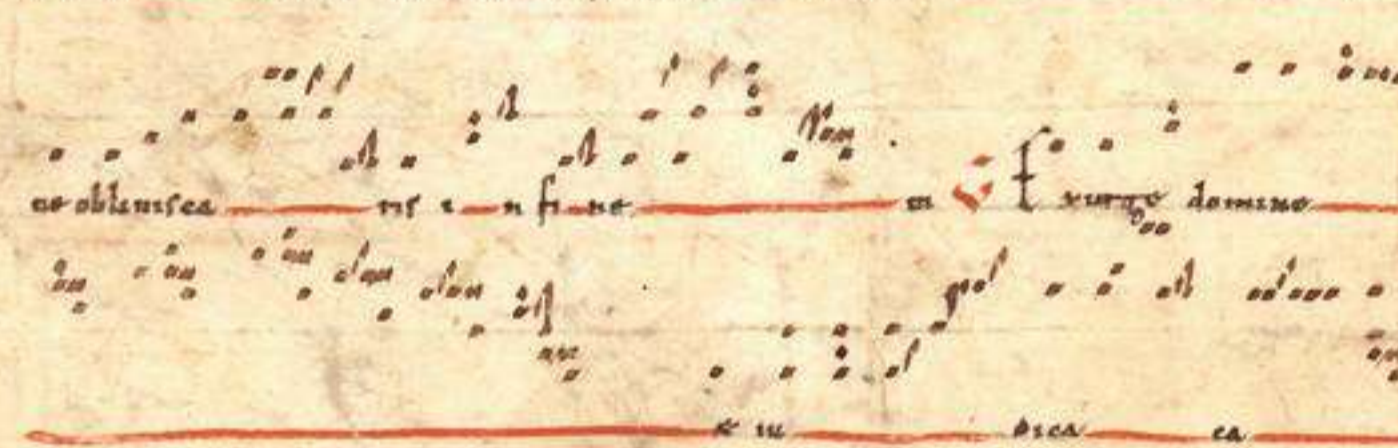 ne obliuisca ris i n fi ne m E xurge domine
et iu dica ca